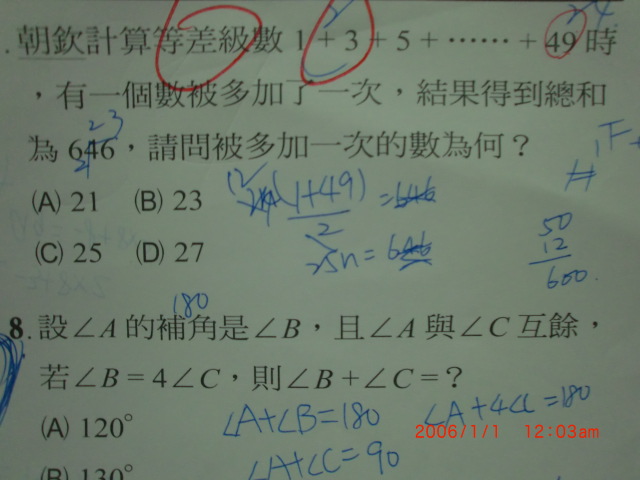 朝欽計算等差級數 1 + 3 + 5 + …… + 49 時
，有一個數被多加了一次，結果得到總和
23
為 646，請問被多加一次的數為何？
(A) 21 (B) 23
(1+49)
2
= 646
(C) 25 (D) 27
25n = 646
50
12
600
180
8. 設∠A 的補角是∠B，且∠A 與∠C 互餘，
若∠B = 4∠C，則∠B + ∠C = ?
(A) 120°
∠A+∠B=180
∠A+4∠C=180
2006/1/1 12:03am
∠A+∠C=90
(B) 130°